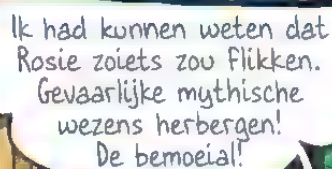 Ik had kunnen weten dat
Rosie zoiets zou flikken.
Gevaarlijke mythische
wezens herbergen!
De bemoeial!